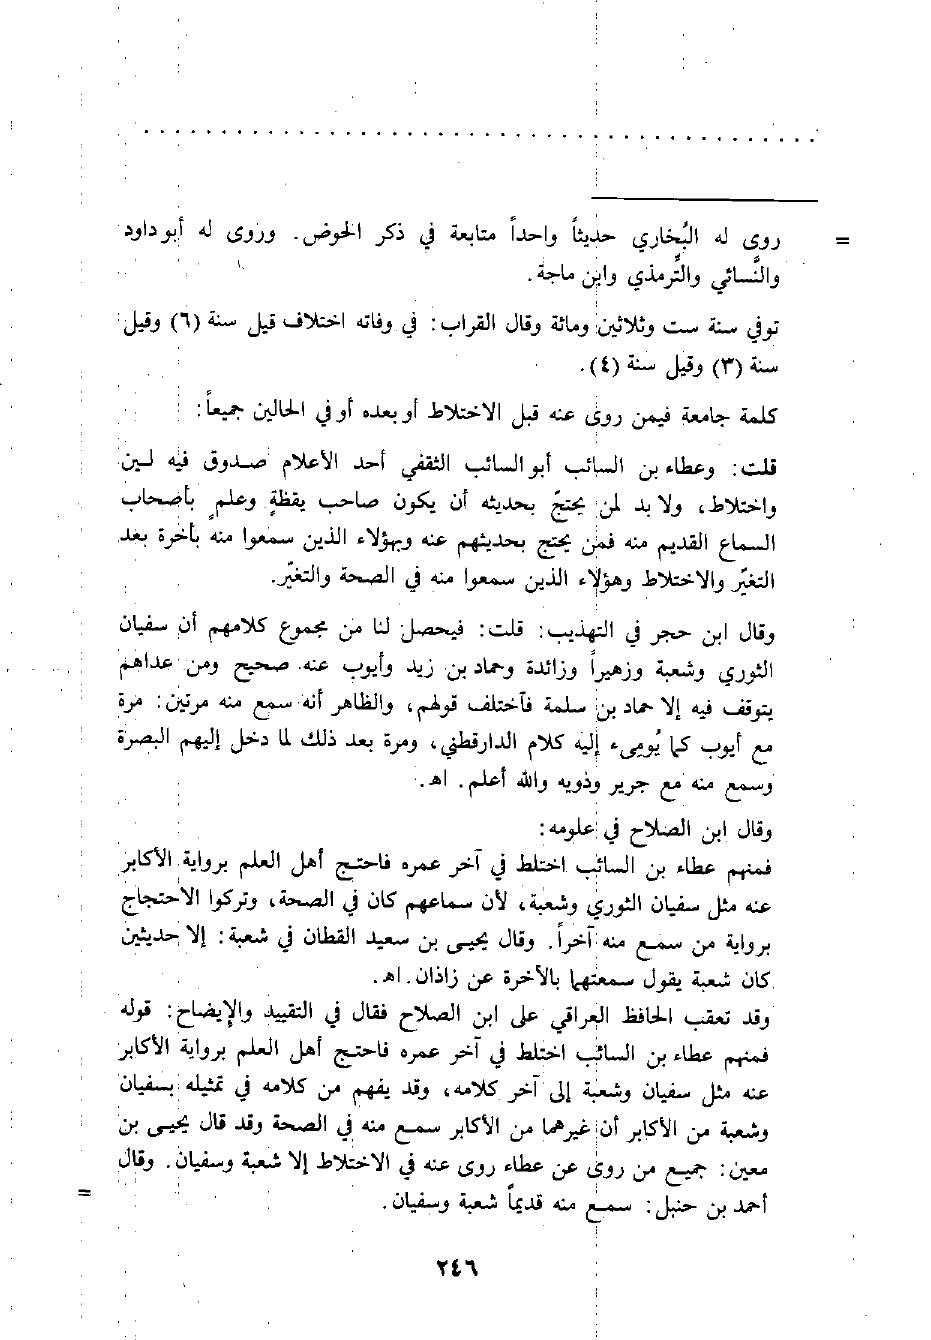 = روى له البُخاري حديثاً واحداً متابعة في ذكر الحوض. وروى له أبو داود
والنَّسائي والتَّرمذي وابن ماجة.
توفي سنة ست وثلاثين ومائة وقال القراب: في وفاته اختلاف قيل سنة (٦) وقيل
سنة (٣) وقيل سنة (٤).
كلمة جامعة فيمن روى عنه قبل الاختلاط أو بعده أو في الحالين جميعاً:
قلت: وعطاء بن السائب أبو السائب الثقفي أحد الأعلام صدوق فيه لين
واختلاط، ولا بد لمن يحتجّ بحديثه أن يكون صاحب يقظةٍ وعلمٍ بأصحاب
السماع القديم منه فمن يحتج بحديثهم عنه وبهؤلاء الذين سمعوا منه بأخرة بعد
التغيّر والاختلاط وهؤلاء الذين سمعوا منه في الصحة والتغيّر.
وقال ابن حجر في التهذيب: قلت: فيحصل لنا من مجموع كلامهم أن سفيان
الثوري وشعبة وزهيراً وزائدة وحماد بن زيد وأيوب عنه صحيح ومن عداهم
يتوقف فيه إلا حماد بن سلمة فآختلف قولهم، والظاهر أنه سمع منه مرتين: مرة
مع أيوب كما يُومىء إليه كلام الدارقطني، ومرة بعد ذلك لما دخل إليهم البصرة
وسمع منه مع جرير وذويه والله أعلم. اهـ.
وقال ابن الصلاح في علومه:
فمنهم عطاء بن السائب اختلط في آخر عمره فاحتج أهل العلم برواية الأكابر
عنه مثل سفيان الثوري وشعبة، لأن سماعهم كان في الصحة، وتركوا الاحتجاج
برواية من سمع منه آخراً. وقال يحيى بن سعيد القطان في شعبة: إلا حديثين
كان شعبة يقول سمعتهما بالأخرة عن زاذان. اهـ.
وقد تعقب الحافظ العراقي على ابن الصلاح فقال في التقييد والإيضاح: قوله
فمنهم عطاء بن السائب اختلط في آخر عمره فاحتج أهل العلم برواية الأكابر
عنه مثل سفيان وشعبة إلى آخر كلامه، وقد يفهم من كلامه في تمثيله بسفيان
وشعبة من الأكابر أن غيرهما من الأكابر سمع منه في الصحة وقد قال يحيى بن
معين: جميع من روى عن عطاء روى عنه في الاختلاط إلا شعبة وسفيان. وقال
أحمد بن حنبل: سمع منه قديماً شعبة وسفيان. =
٢٤٦